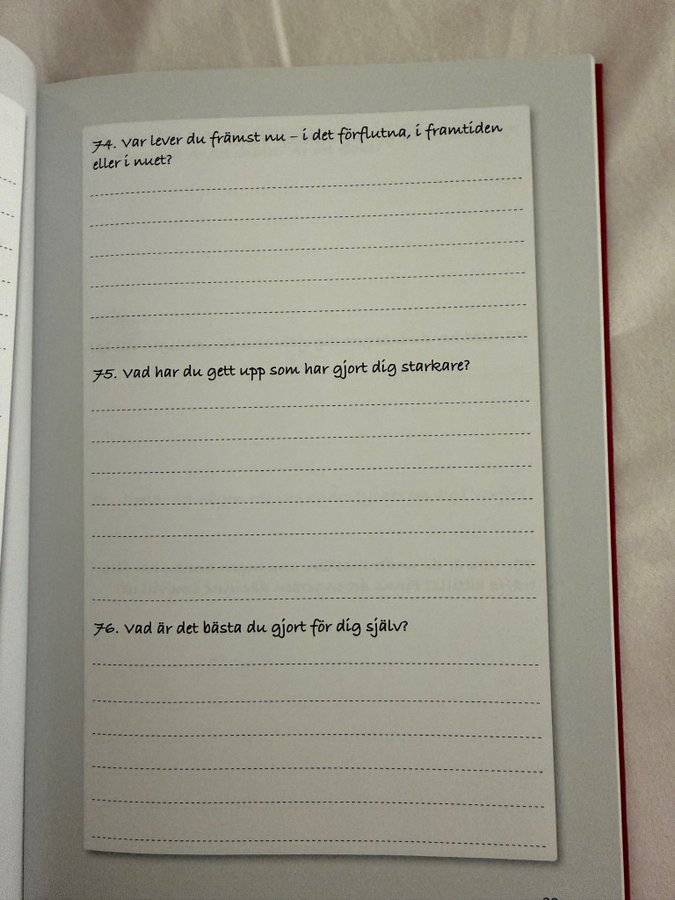 74. Var lever du främst nu – i det förflutna, i framtiden
eller i nuet?
75. Vad har du gett upp som har gjort dig starkare?
76. Vad är det bästa du gjort för dig själv?